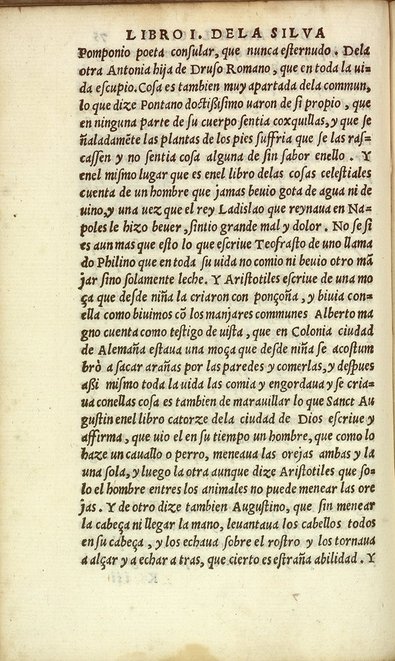 LIBRO I. DELA SILVA
Pomponio poeta consular, que nunca esternudo. Dela
otra Antonia hija de Druso Romano, que en toda la ui=
da escupio. Cosa es tambien muy apartada dela commun,
lo que dize Pontano doctißisimo uaron de si propio, que
en ninguna parte de su cuerpo sentia coxquillas, y que se
ñaladamēte las plantas de los pies suffria que se las ras=
cassen y no sentia cosa alguna de sin sabor enello. Y
enel mismo lugar que es enel libro delas cosas celestiales
cuenta de un hombre que jamas beuio gota de agua ni de
uino, y una vez que el rey Ladislao que reynaua en Na=
poles le hizo beuer, sintio grande mal y dolor. No se si
es aun mas que esto lo que escriue Teofrasto de uno llama
do Philino que en toda su uida no comio ni beuio otro mā
jar sino solamente leche. Y Aristotiles escriue de una mo
ça que desde niña la criaron con ponçoña, y biuia con=
ella como biuimos cō los manjares communes Alberto ma
gno cuenta como testigo de uista, que en Colonia ciudad
de Alemaña estaua una moça que desde niña se acostum
brò a sacar arañas por las paredes y comerlas, y despues
aßi mismo toda la uida las comia y engordaua y se cria=
ua conellas cosa es tambien de marauillar lo que Sanct Au
gustin enel libro catorze dela ciudad de Dios escriue y
affirma, que uio el en su tiempo un hombre, que como lo
haze un cauallo o perro, meneaua las orejas ambas y la
una sola, y luego la otra aunque dize Aristotiles que so=
lo el hombre entres los animales no puede menear las ore
jas. Y de otro dize tambien Augustino, que sin menear
la cabeça ni llegar la mano, leuantaua los cabellos todos
en su cabeça, y los echaua sobre el rostro y los tornaua
a alçar y a echar a tras, que cierto es estraña abilidad. Y